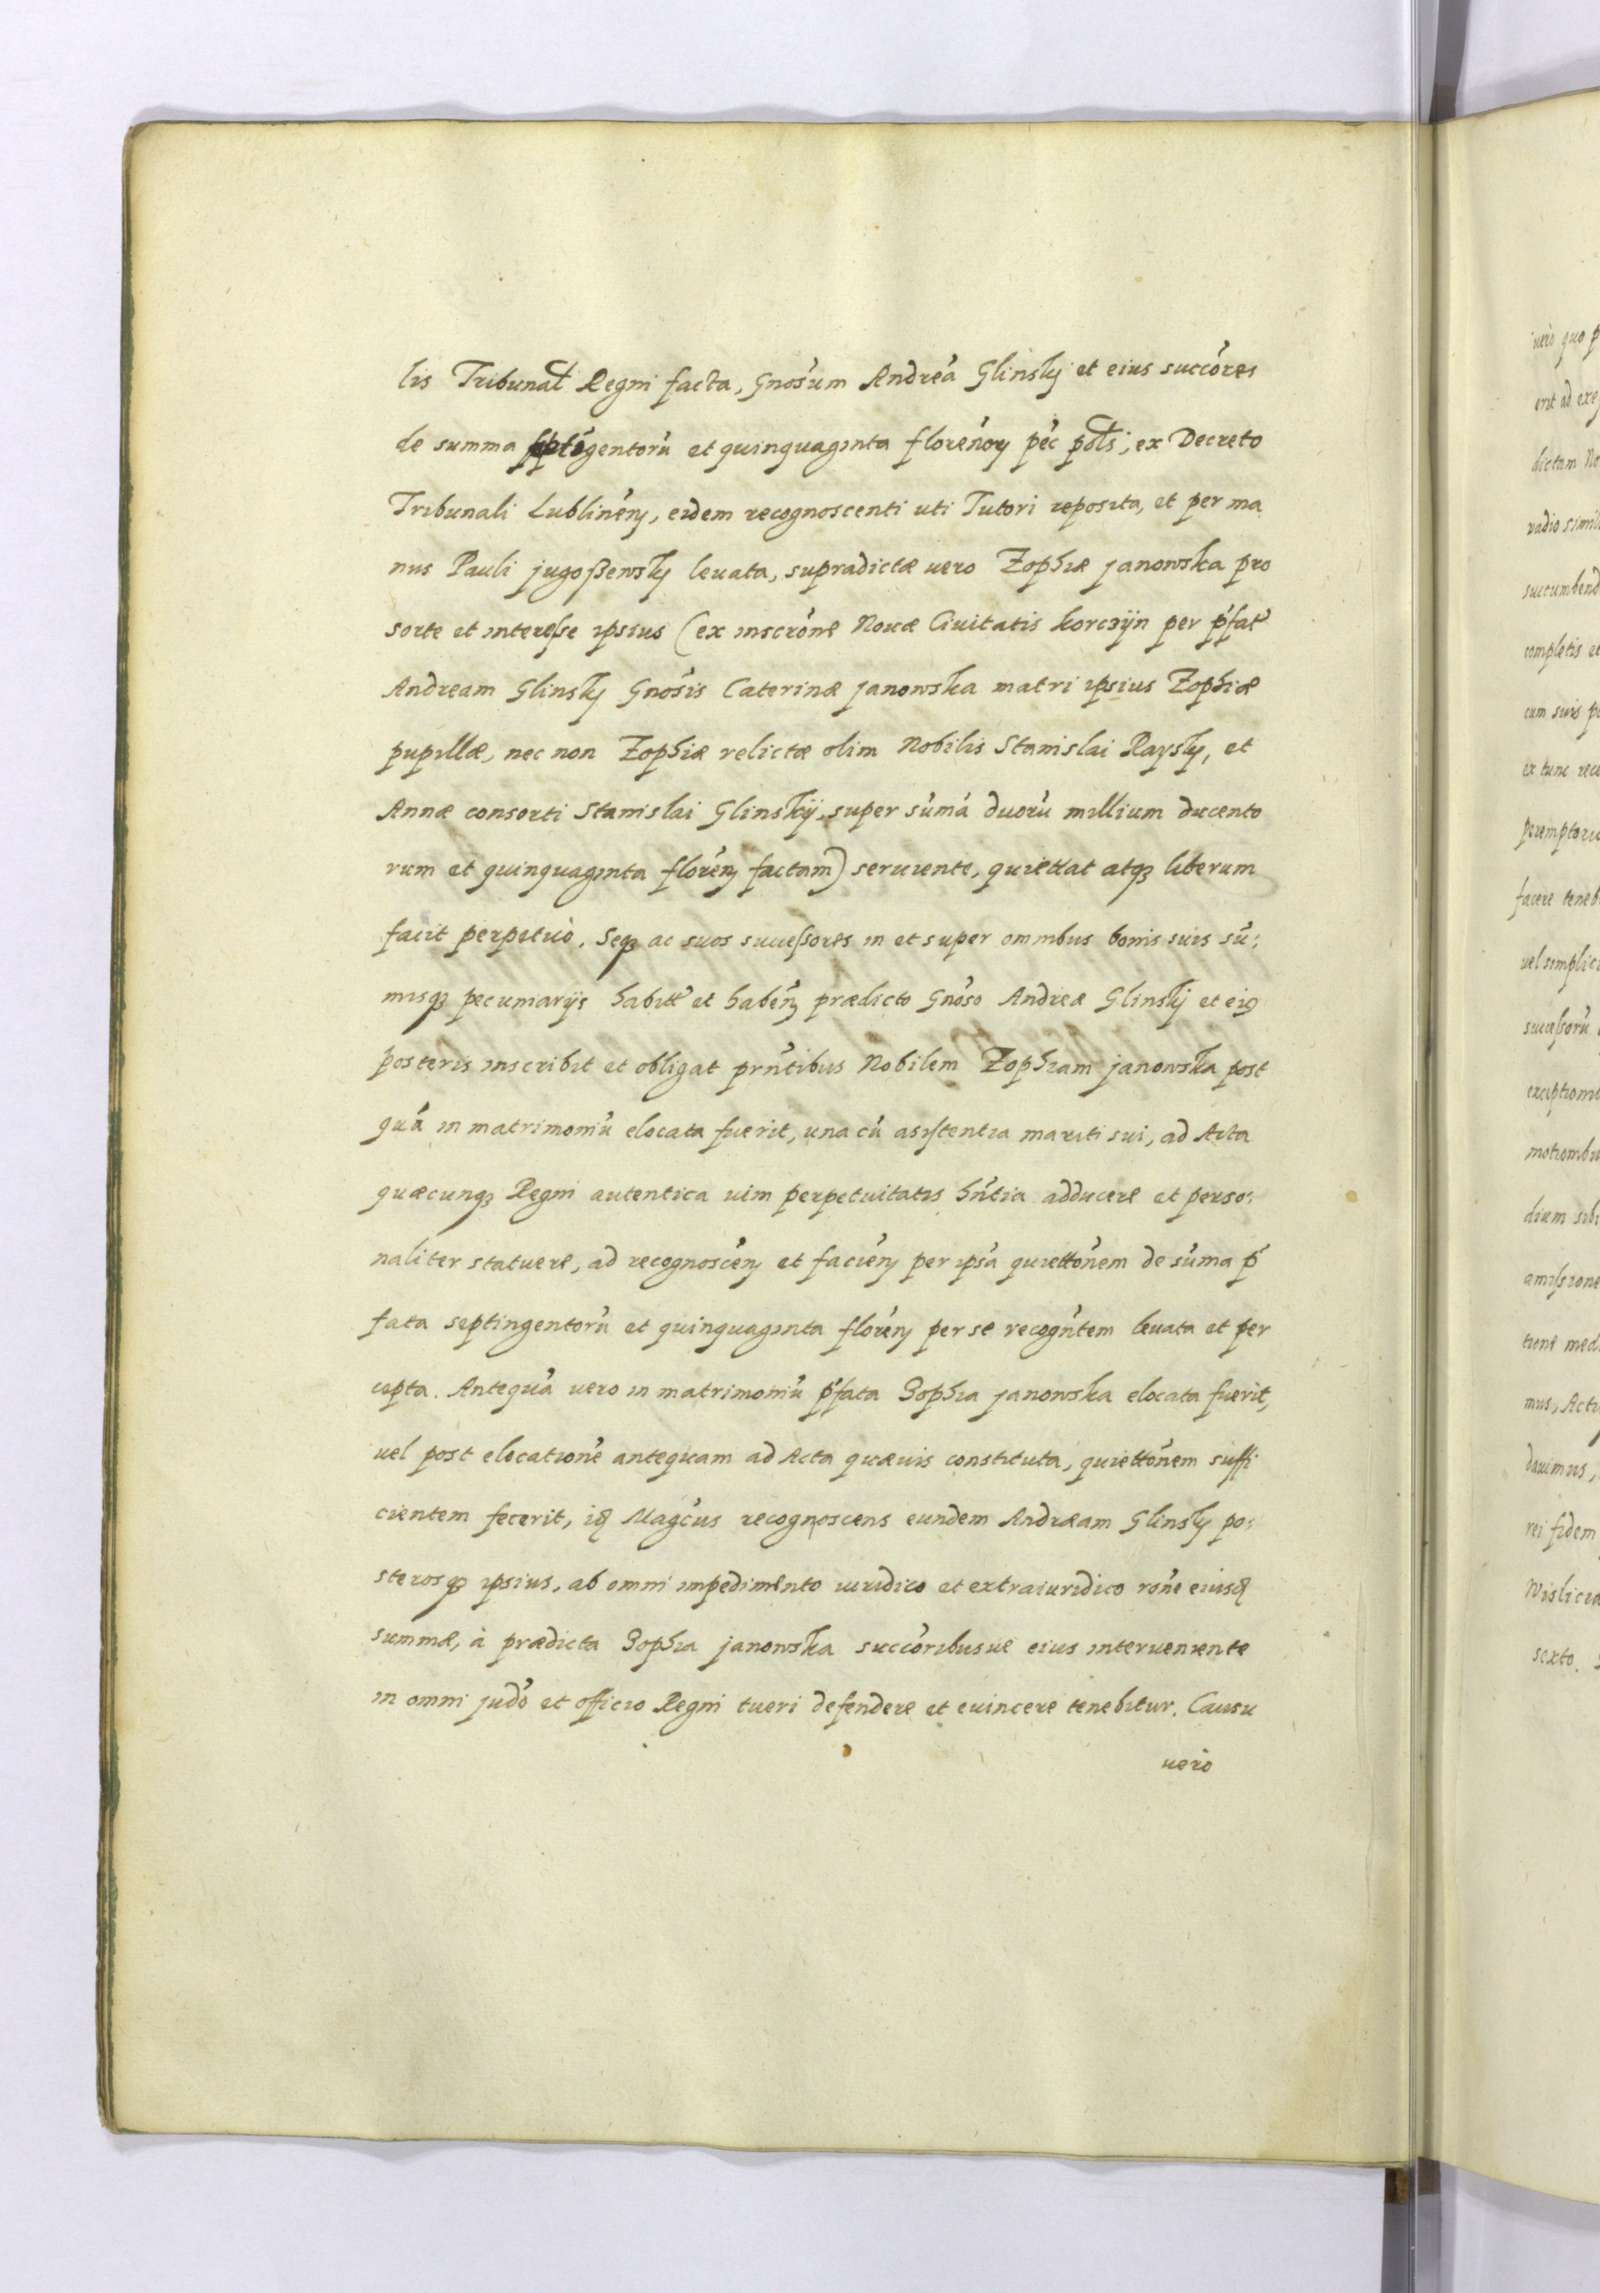 lis Tribunal Regni facta, Gnosum Andrea Glinskj et eius succores
de summa septigentoru et quinquaginta florenor pec pols; ex Decreto
Tribunali Lublinen, eidem recognoscenti uti Tutori reposita, et per ma
nus Pauli jugoßewskj leuata, supradictæ uero Zophiæ janowska pro
sorte et interesse ipsius (ex inscrone Nouæ Ciuitatis korczÿn per pfat
Andream Glinskj Gnosis Caterinæ janowska matri ipsius Zophiæ
pupillæ, nec non Zophiæ relictæ olim Nobilis Stanislai Raysky, et
Annæ consorti Stanislai Glinskij, super suma duoru millium ducento
rum et quinquaginta floren factam) seruiente, quiettat atq liberum
facit perpetuò. Seq ac suos successores in et super omnibus bonis suis su:
misq pecuniarijs habit et haben prædicto Gnoso Andreæ Glinskj et ei9
posteris inscribit et obligat prntibus Nobilem Zophiam janowska post
quá in matrimoniu elocata fuerit, una cu asistentia mariti sui, ad Acta
quæcunq Regni autentica uim perpetuitatis hntia adducere et perso:
naliter statuere, ad recognoscen et facien per ipsa quiettonem de suma p
fata septingentoru et quinquaginta floren per se recogntem leuata et per
cepta. Antequa uero in matrimoniu pfata Sophia janowska elocata fuerit,
uel post elocatione antequam ad Acta quæuis constituta, quiettonem suffi
cientem fecerit, id Magcus recognoscens eundem Andræam Glinsky po:
sterosq ipsius, ab omni impedimento iuridico et extraiuridico rone eiusd
summæ, à prædicta Sophia janowska succoribusue eius interueniente
in omni judo et officio Regni tueri defendere et euincere tenebitur. Causu
uero
inerò quo p
erit ad exe
dictam No
uadio simil
succumbend
completis et
cum suis p
ex tunc rec
peremptoriu
facere teneb
uel simplici
succesoru
exceptioni
motionibu
dium sibi
amissione
tione med
mus, Acti
dauimus,
rei fidem
Wislicia
sexto.